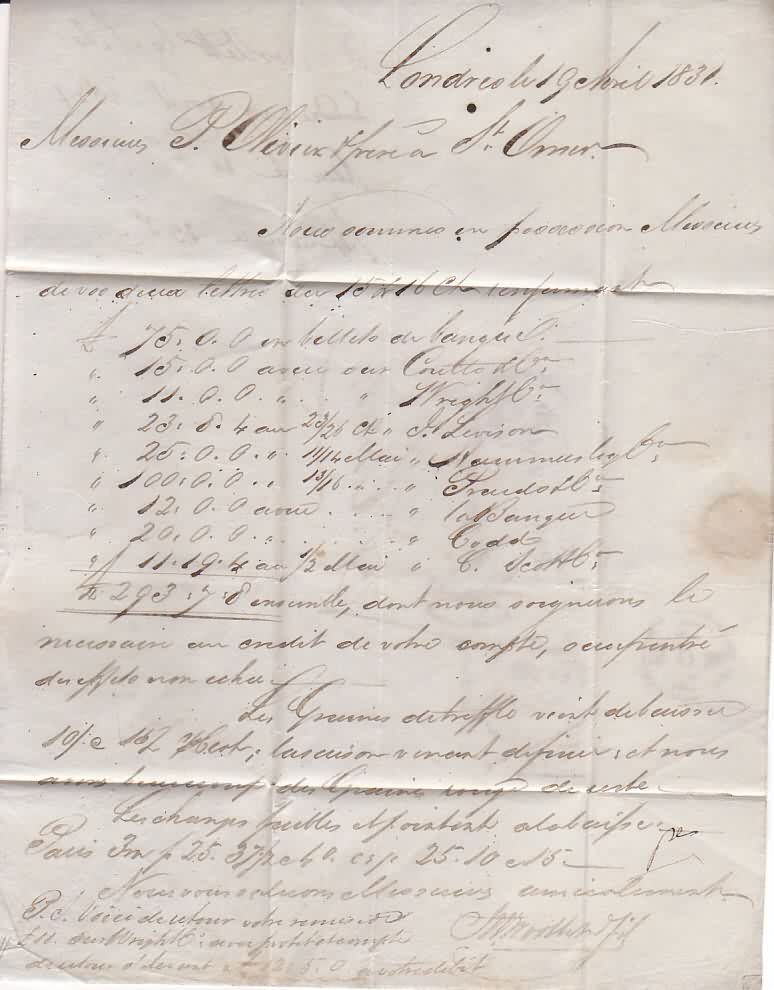 Londres le 19 Avril 1831.
Messieurs P. Olivier & frere a St. Omer.
Nous sommes en possession Messieurs
de vos deux lettres des 15 & 16 Ct renfermant
£ 75. 0. 0 en billets de banque.
" 15. 0. 0 a vue sur Coutts & Co.
" 11. 0. 0 " " Wright & Co.
" 23. 8. 4 au 23/26 Ct " J. Levison
" 25. 0. 0 " 11/14 Mai " Hammersley & Co.
" 100. 0. 0 " 13/16 " " Praeds & Co.
" 12. 0. 0 a vue " la Banque
" 20. 0. 0 " " Todd
" 11. 19. 4 au 1/2 Mai " C. Scott & Co.
£ 293. 7. 8 ensemble, dont nous soignerons le
necessaire au credit de votre compte, sauf rentrée
des effets non echus.
Les Graines de treffle vient de baisser
la saison venant de finir; et nous
avons beaucoup des Graines rouge de reste
Les changes faibles et pointent a la baisse
Paris 3m f 25. 37½ ct 25. 10 a 15.
Nous vous saluons Messieurs amicalement
P.S. Voici de retour votre remise de
£ 11. sur Wright & Co. avec protet et compte
de retour 5. 0 a votre debit